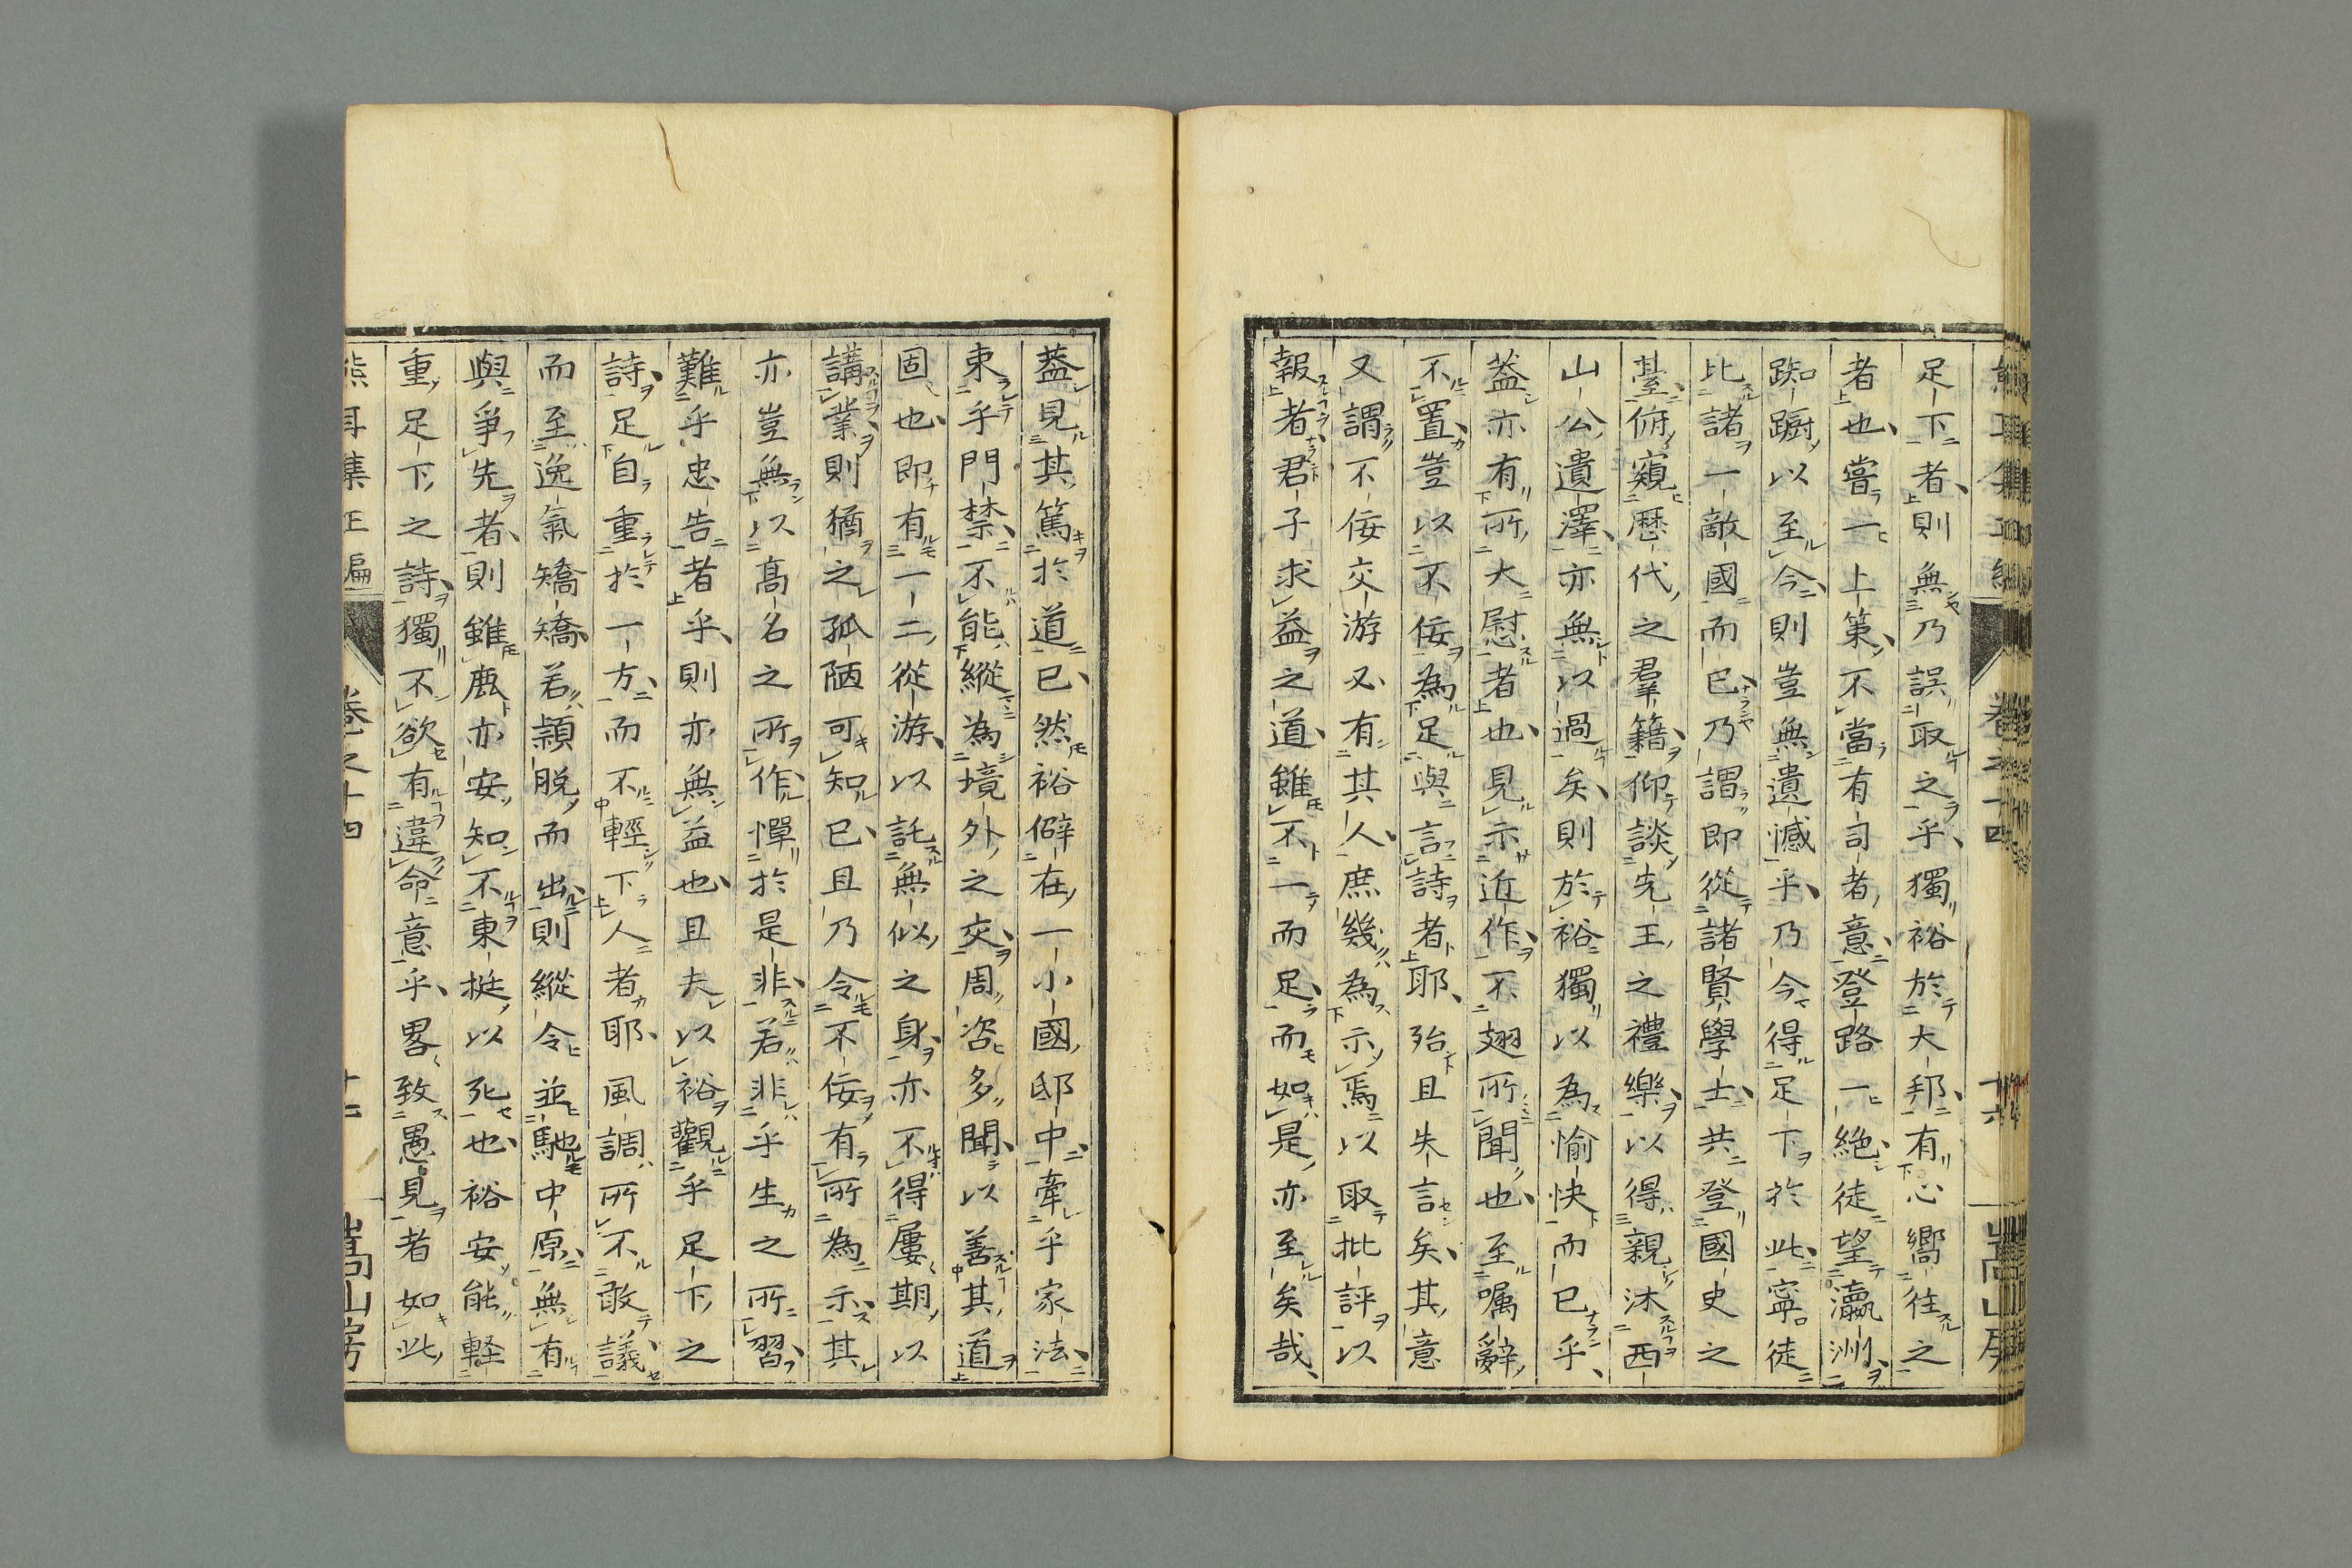 足下者則無乃誤取之乎獨裕於大邦有心嚮往之
者也嘗一上策不當有司者意登路一絕徒望瀛洲
踟蹰以至今則豈無遺憾乎乃今得足下於此寧徒
比諸一敵國而已乃謂即從諸賢學士共登國史之
臺俯窺歷代之羣籍仰談先王之禮樂以得親沐西
山公遺澤亦無以過矣則於裕獨以為愉快而已乎
蓋亦有所大慰者也見示近作不翅所聞也至嘱辭
不置豈以不佞為足與言詩者耶殆且失言矣其意
又謂不佞交游必有其人庶幾為示焉以取批評以
報者君子求益之道雖不一而足而如是亦至矣哉
蓋見其篤於道已然裕僻在一小國邸中牽乎家法
束乎門禁不能縱為境外之交周咨多聞以善其道
固也即有一二從游以託無似之身亦不得屢期以
講業則猶之孤陋可知已且乃令不佞有所為示其
亦豈無以高名之所作憚於是非若非乎生之所習
難乎忠告者乎則亦無益也且夫以裕觀乎足下之
詩足自重於一方而不輕下人者耶風調所不敢議
而至逸氣矯矯若穎脫而出則縱令並馳中原無有
與爭先者則雖鹿亦安知不東挺以死也裕安能輕
重足下之詩獨不欲有違命意乎畧致愚見者如此
熊耳集正編 卷之十四 十七 嵩山房